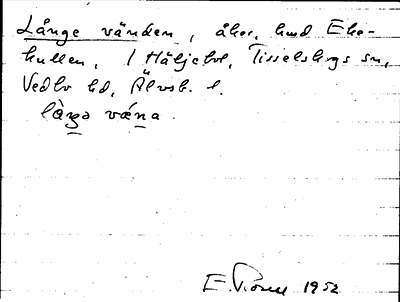 Långe vänden, åker, hmd Eke-
kullen, 1 Häljebol, Tisselskogs sn,
Vedbo hd, Älvsb. l.
làŋə vǽna.
E. Rosell 1952